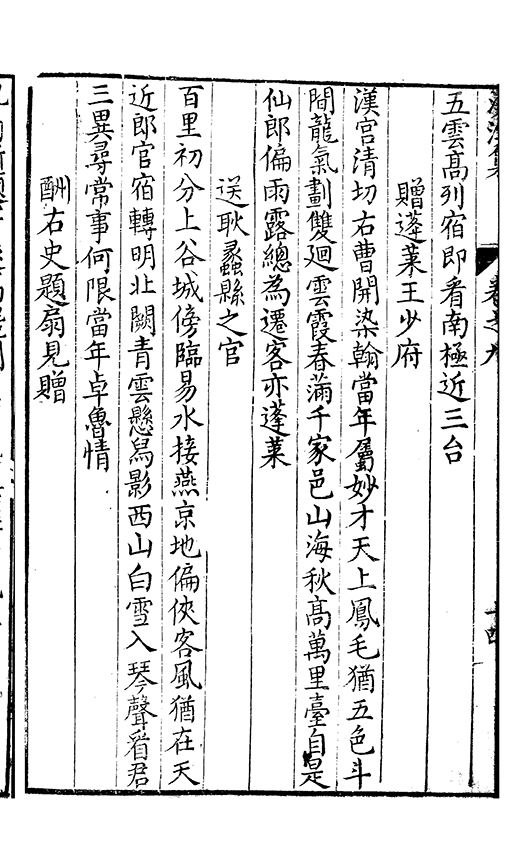 卷之九
五雲高列宿即看南極近三台
贈蓬萊王少府
漢宮清切右曹開染翰當年屬妙才天上鳳毛猶五色斗
間龍氣劃雙迴雲霞春滿千家邑山海秋高萬里臺自是
仙郎偏雨露總為遷客亦蓬萊
送耿蠡縣之官
百里初分上谷城傍臨易水接燕京地偏俠客風猶在天
近郎官宿轉明北闕青雲懸舄影西山白雪入琴聲看君
三異尋常事何限當年卓魯情
酬右史題扇見贈